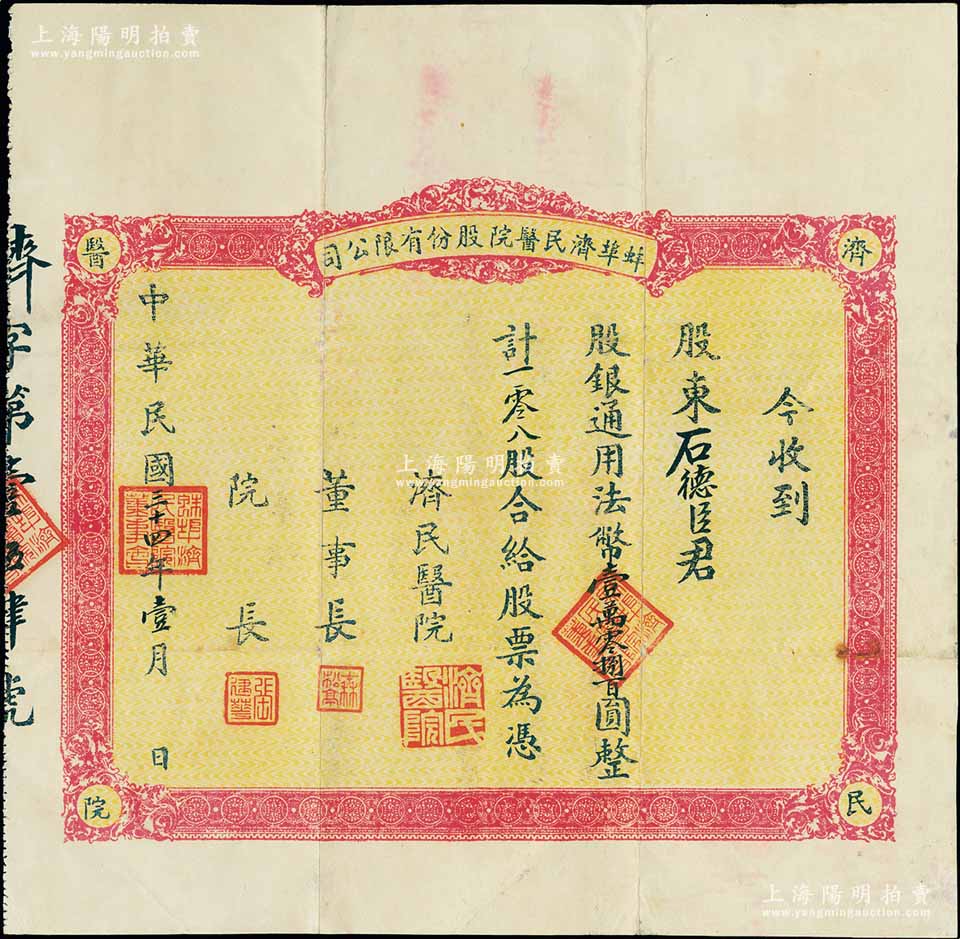 上海陽明拍賣
www.yangmingauction.com
蚌埠濟民醫院股份有限公司
濟
民
醫
院
今收到
股東石德臣君
股銀通用法幣壹萬零捌百圓整
計一零八股合給股票為憑
濟民醫院
濟民醫院
董事長
院長
中華民國三十四年壹月 日
字第壹伍肆號
上海陽明拍賣
www.yangmingauction.com
上海陽明拍賣
www.yangmingauction.com